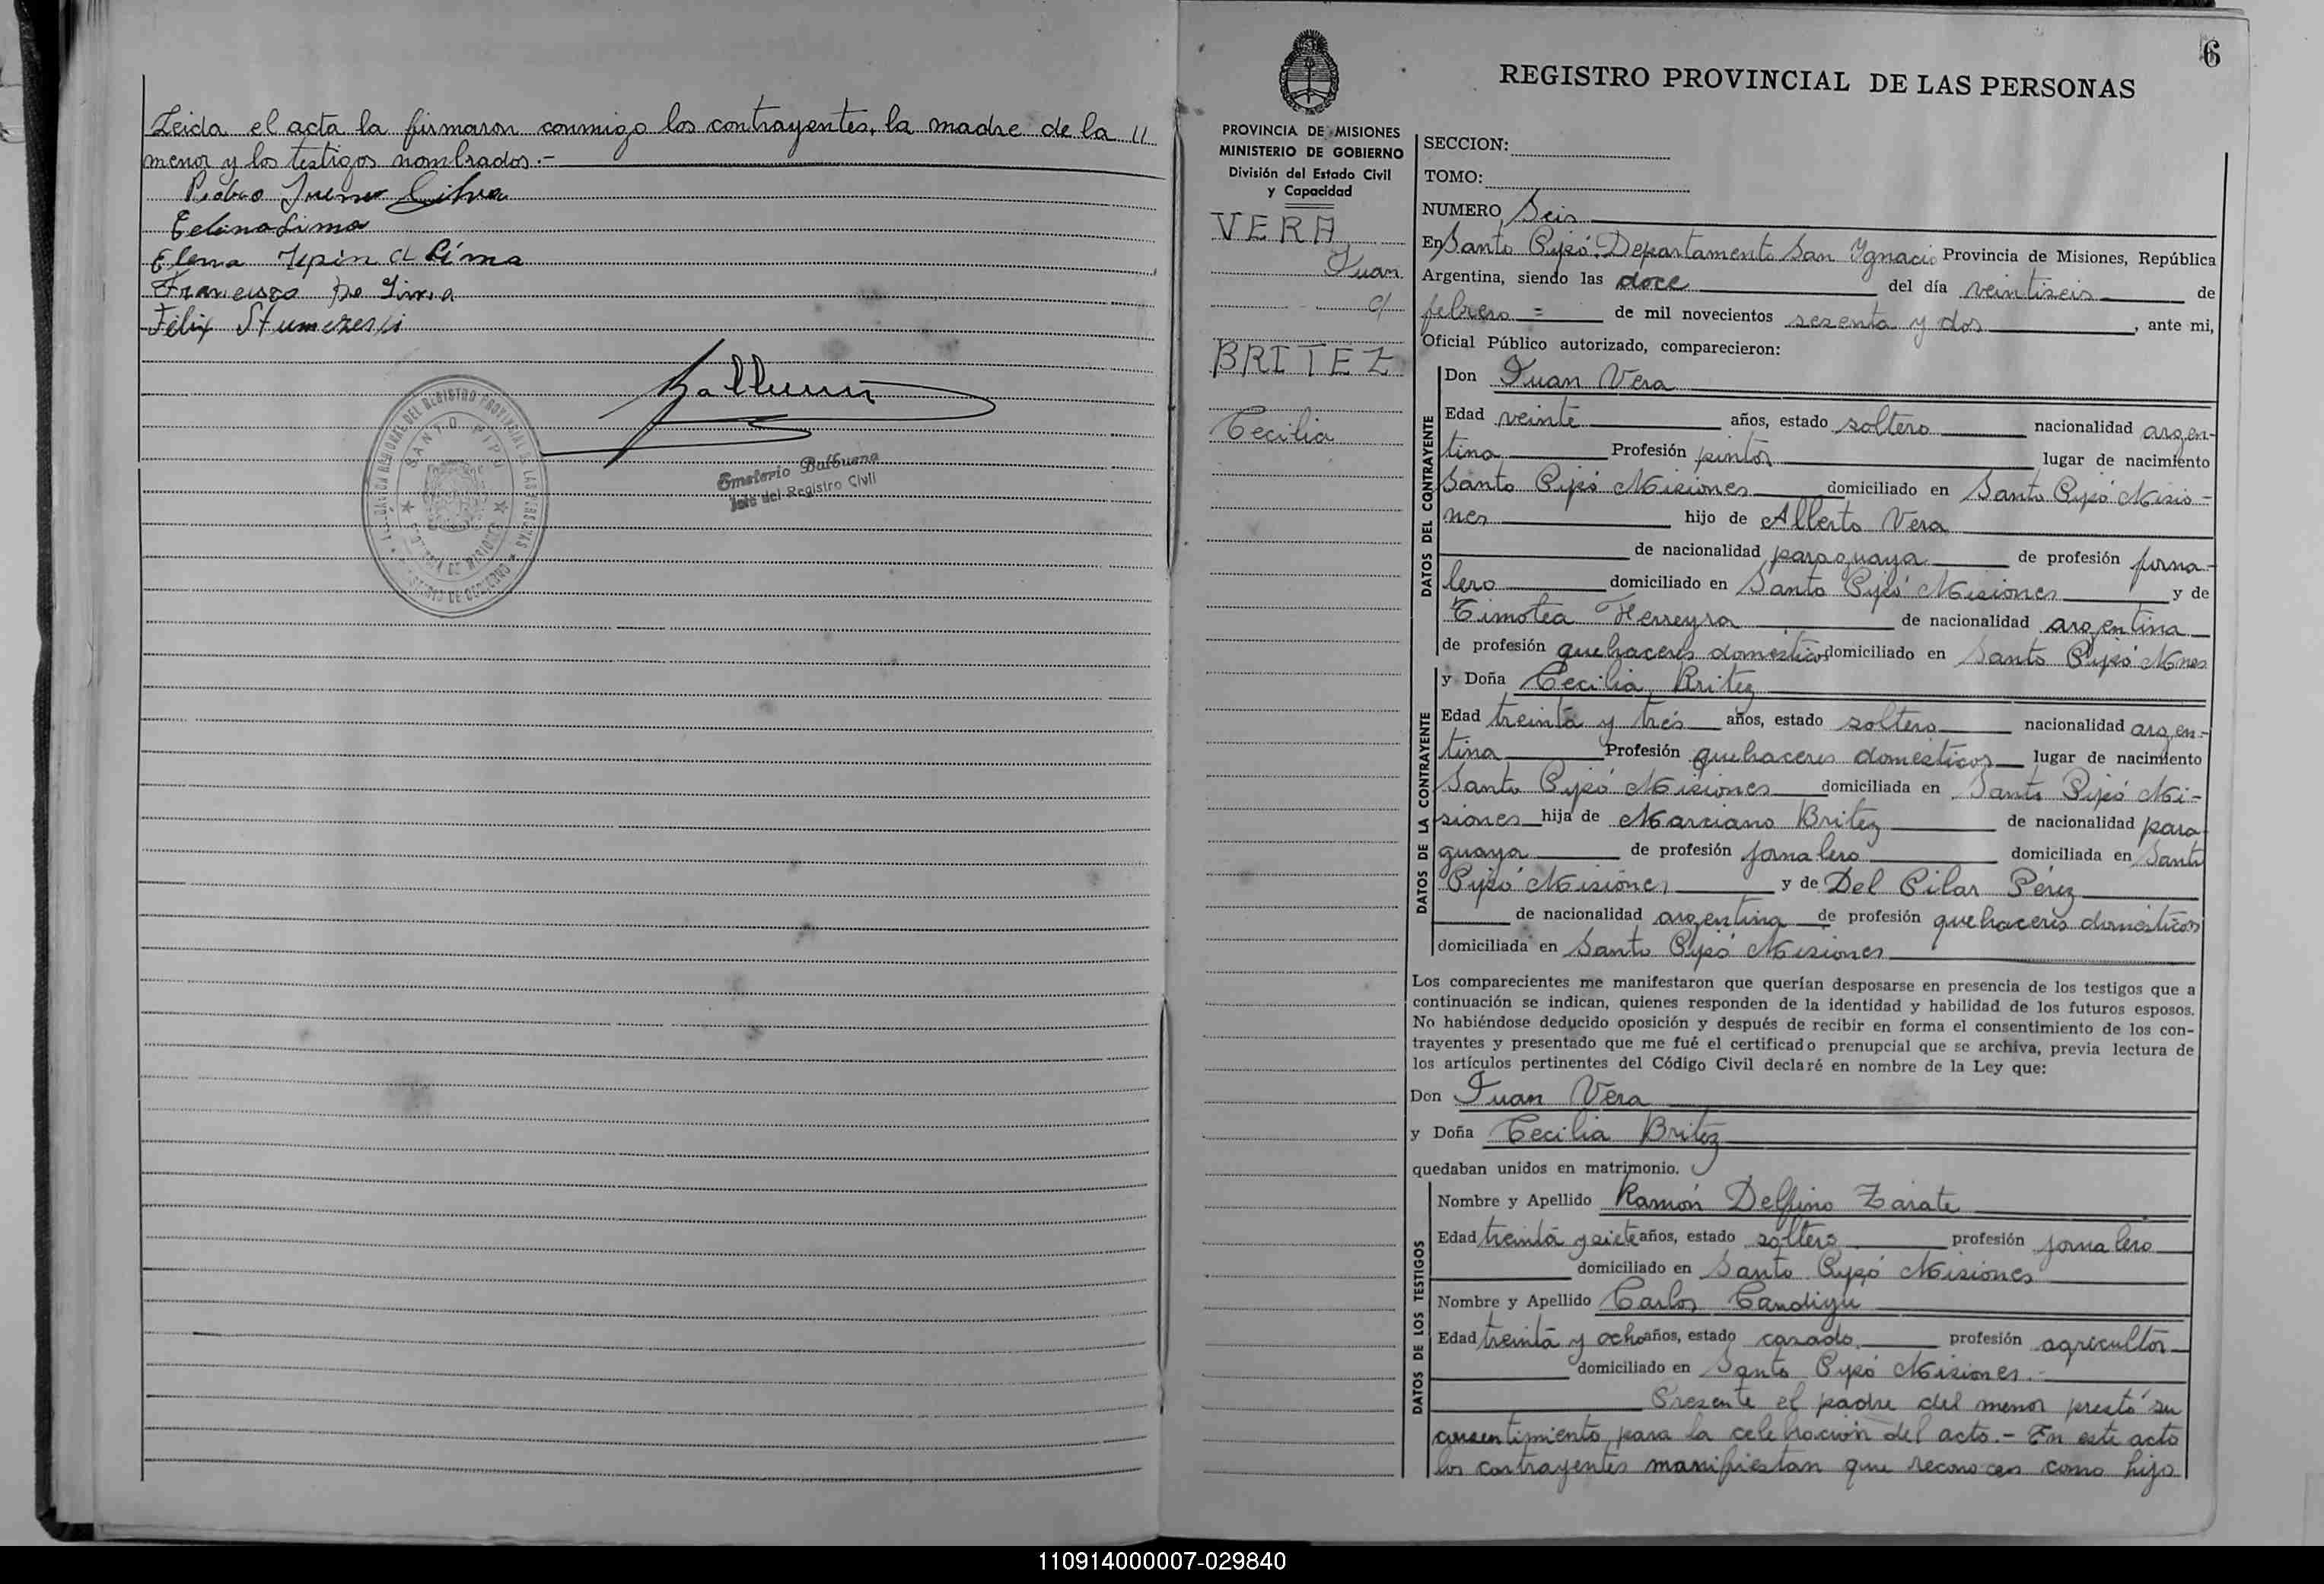 Leida el acta la firmaron conmigo los contrayentes, la madre de la
menor y los testigos nombrados.-
Pedro Silva
Celina Lima
Elena de Lima
Francisco de Lima
Felix
Emeterio Balbuena
Jefe del Registro Civil
SANTO PIPO
6
REGISTRO PROVINCIAL DE LAS PERSONAS
PROVINCIA DE MISIONES
MINISTERIO DE GOBIERNO
División del Estado Civil
y Capacidad
VERA
Juan
c/
BRITEZ
Cecilia
SECCION:
TOMO:
NUMERO Seis
En Santo Pipó Departamento San Ignacio Provincia de Misiones, República
Argentina, siendo las doce del día veintiseis de
febrero = de mil novecientos sesenta y dos, ante mi,
Oficial Público autorizado, comparecieron:
DATOS DEL CONTRAYENTE
Don Juan Vera
Edad veinte años, estado soltero nacionalidad argen-
tina Profesión pintor lugar de nacimiento
Santo Pipó Misiones domiciliado en Santo Pipó Misio-
nes hijo de Alberto Vera
de nacionalidad paraguaya de profesión jorna-
lero domiciliado en Santo Pipó Misiones y de
Timotea Ferreyra de nacionalidad argentina
de profesión quehaceres domésticos domiciliado en Santo Pipó Mnes
DATOS DE LA CONTRAYENTE
y Doña Cecilia Britez
Edad treinta y tres años, estado soltera nacionalidad argen-
tina Profesión quehaceres domesticos lugar de nacimiento
Santo Pipó Misiones domiciliada en Santo Pipó Mi-
siones hija de Marciano Britez de nacionalidad para
guaya de profesión jornalero domiciliada en Santo
Pipó Misiones y de Del Pilar Pérez
de nacionalidad argentina de profesión quehaceres domésticos
domiciliada en Santo Pipó Misiones
Los comparecientes me manifestaron que querían desposarse en presencia de los testigos que a
continuación se indican, quienes responden de la identidad y habilidad de los futuros esposos.
No habiéndose deducido oposición y después de recibir en forma el consentimiento de los con-
trayentes y presentado que me fué el certificado prenupcial que se archiva, previa lectura de
los artículos pertinentes del Código Civil declaré en nombre de la Ley que:
Don Juan Vera
y Doña Cecilia Britez
quedaban unidos en matrimonio.
DATOS DE LOS TESTIGOS
Nombre y Apellido Ramón Delfino Zarate
Edad treinta y siete años, estado soltero profesión jornalero
domiciliado en Santo Pipó Misiones
Nombre y Apellido Carlos Candiyu
Edad treinta y ocho años, estado casado profesión agricultor
domiciliado en Santo Pipó Misiones.-
Presente el padre del menor prestó su
consentimiento para la celebración del acto.- En este acto
los contrayentes manifiestan que reconocen como hijo
110914000007-029840